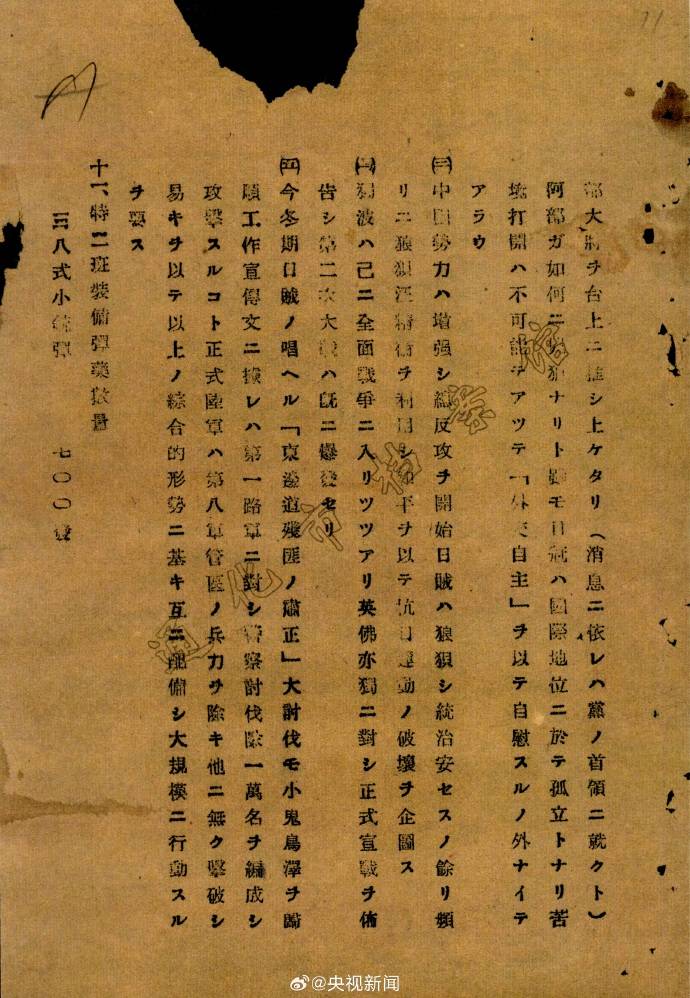 部大將ヲ台上ニ推シ上ケタリ(消息ニ依レハ黨ノ首領ニ就クト)
阿部ガ如何ニ ナリト雖モ日寇ハ國際地位ニ於テ孤立トナリ苦
境打開ハ不可能デアツテ「外交自主」ヲ以テ自慰スルノ外ナイデ
アラウ
㈢中國勢力ハ增强シ總反攻ヲ開始日賊ハ狼狽シ統治安セスノ餘リ頻
リニ狼狽 特術ヲ利用シ和平ヲ以テ抗日運動ノ破壞ヲ企圖ス
獨波ハ己ニ全面戰爭ニ入リツツアリ英佛亦獨ニ對シ正式宣戰ヲ佈
告シ第二次大戰ハ既ニ爆發セリ
㈤今冬期日賊ノ唱ヘル「東邊道殘匪ノ肅正」大討伐モ小鬼鳥澤ヲ歸
順工作宣傳文ニ據レハ第一路軍ニ對シ警察討伐隊一萬名ヲ編成シ
攻擊スルコト正式陸軍ハ第八軍管區ノ兵力ヲ除キ他ニ無ク擊破シ
易キヲ以テ以上ノ綜合的形勢ニ基キ互ニ配備シ大規模ニ行動スル
ヲ要ス
十一、特二班裝備彈藥數量
三八式小銃彈 七〇〇發
通化市档案馆
11
@央视新闻